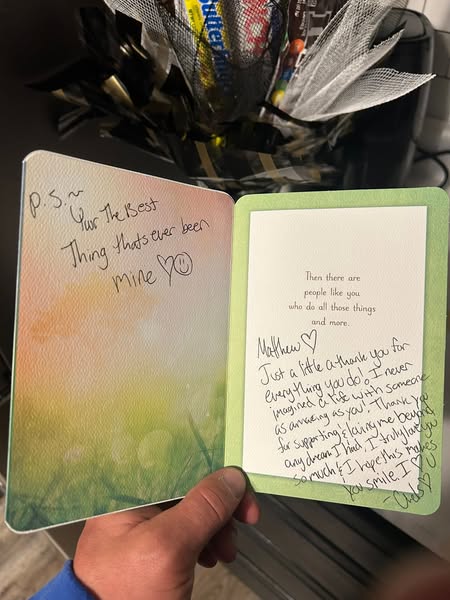 P.S.~
Your The Best
Thing thats ever been
mine ♡☺
Then there are
people like you
who do all those things
and more.
Matthew ♡
Just a little a thank you for
everything you do! I never
imagined a life with someone
as amazing as you! Thank you
for supporting & loving me beyond
any dream I had. I truly love you
so much & I hope this makes
you smile. I ♡